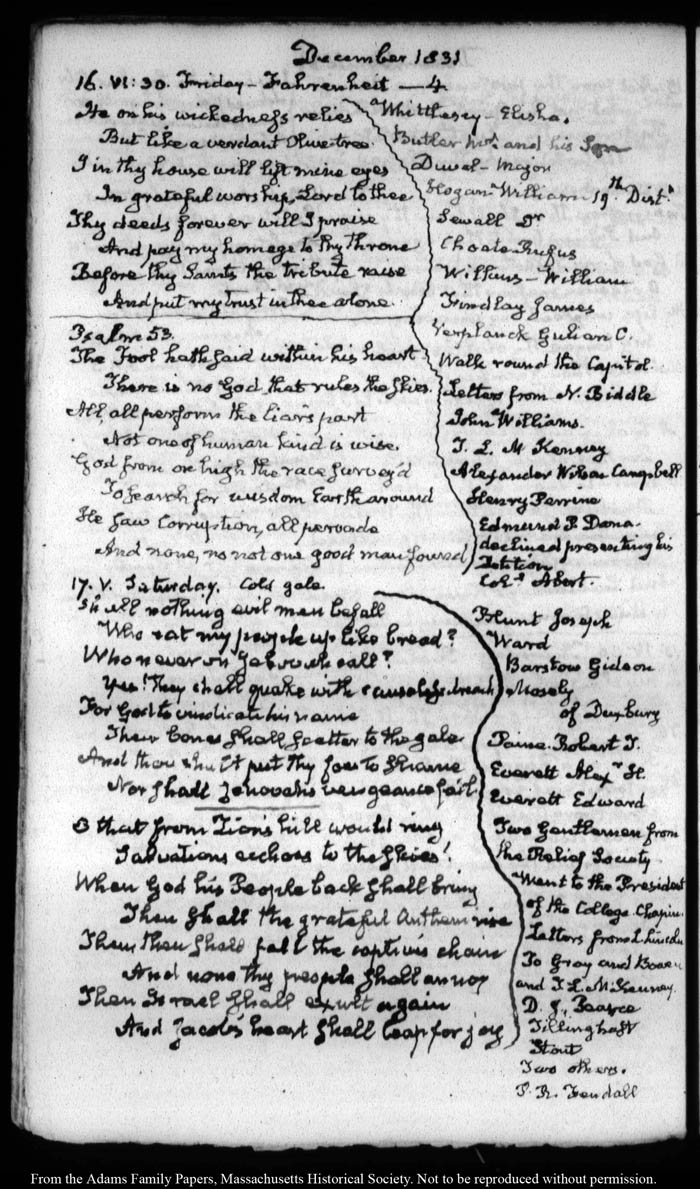 December 1831
16. VI:30. Friday - Fahrenheit — 4
He on his wickedness relies
But like a verdant Olive-tree.
I in thy house will lift mine eyes
In grateful worship, Lord to thee
Thy deeds forever will I praise
And pay my homage to thy throne
Before thy Saints the tribute raise
And put my trust in thee alone.
Psalm 53.
The Fool hath said within his heart
There is no God that rules the skies.
All, all perform the liar's part
Not one of human kind is wise.
God from on high the race survey'd
To search for wisdom Earth around
He saw Corruption, all pervade
And none, no not one good man found
Whittlesey - Elisha.
Butler Mrs. and his Son
Duval - Major
Hogan William 19th. Distt.
Sewall Dr
Choate Rufus
Wilkins - William
Findlay James
Verplanck Gulian C.
Walk round the Capitol.
Letters from N. Biddle
John Williams.
T. L. McKenney
Alexander Wilson Campbell
Henry Perrine
Edmund P. Dana.
declined presenting his
Petition
Coll. Abert.
17. V. Saturday. Cold gale.
Shall nothing evil men befall
Who eat my people up like bread?
Who never on Jehovah call?
Yes! They shall quake with causeless dread
For God to vindicate his name
Their bones shall scatter to the gale
And thou shalt put thy foes to shame
Nor shall Jehovah's vengeance fail.
O that from Zion's hill would ring
Salvations echoes to the skies!
When God his People back shall bring
Then shall the grateful Anthem rise
Then, then shall fall the captive's chain
And none thy people shall annoy
Then Israel shall exult again
And Jacob's heart shall leap for joy
Blunt Joseph
Ward
Barstow Gideon
Mosely
of Duxbury
Paine. Robert T.
Everett Alexr. H.
Everett Edward
Two Gentlemen from
the Relief Society
Went to the President
of the College. Chapin.
Letters from L. Lincoln
To Gray and Bowen
and T. L. McKenney.
D. J. Pearce
Tillinghast
Stout
Two others.
P. R. Fendall
From the Adams Family Papers, Massachusetts Historical Society. Not to be reproduced without permission.